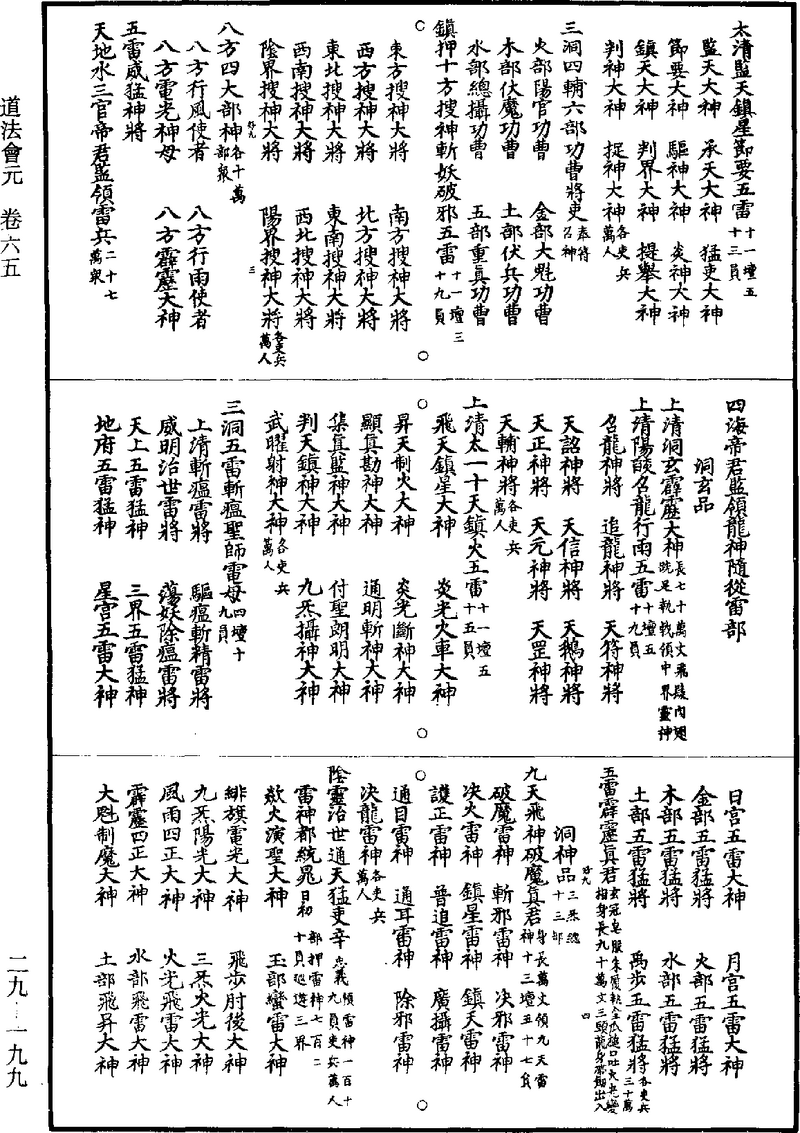 道法會元　卷六五
太清監天鎮星節要五雷十一壇五十三員
監天大神　承天大神　猛吏大神
節要大神　驅神大神　炎神大神
鎮天大神　判界大神　提舉大神
判神大神　捉神大神各吏兵萬人
三洞四輔六部功曹將吏奉符召神
火部陽官功曹　金部大魁功曹
木部伏魔功曹　土部伏兵功曹
水部總攝功曹　五部重真功曹
鎮押十方搜神斬妖破邪五雷十一壇三十九員
東方搜神大將　南方搜神大將
西方搜神大將　北方搜神大將
東北搜神大將　東南搜神大將
西南搜神大將　西北搜神大將
陰界搜神大將　陽界搜神大將各吏兵萬人
八方四大部神各十萬部衆
八方行風使者　八方行雨使者
八方電光神母　八方霹靂大神
五雷威猛神將
天地水三官帝君監領雷兵二十七萬衆
四海帝君監領龍神隨從雷部
洞玄品
上清洞玄霹靂大神長七十萬丈飛髮肉翅跣足執戟領中界靈神
上清陽燄召龍行雨五雷十壇五十九員
召龍神將　追龍神將　天符神將
天詔神將　天信神將　天鵝神將
天正神將　天元神將　天罡神將
天輔神將各吏兵萬人
上清太一十天鎮火五雷十一壇五十五員
飛天鎮星大神　炎光火車大神
昇天制火大神　炎光斷神大神
顯真勘神大神　通明斬神大神
集真監神大神　付聖朗明大神
判天鎮神大神　九炁攝神大神
武曜射神大神各吏兵萬人
三洞五雷斬瘟聖師電母四壇十九員
上清斬瘟雷將　驅瘟斬精雷將
威明治世雷將　蕩妖除瘟雷將
天上五雷猛神　三界五雷猛神
地府五雷猛神　星宮五雷大神
日宮五雷大神　月宮五雷大神
金部五雷猛將　火部五雷猛將
木部五雷猛將　水部五雷猛將
土部五雷猛將　萬步五雷猛將各吏兵三十萬
五雷霹靂真君玄冠皂服朱履執金瓜鎚口吐火光變相身長九十萬丈三頭龍身常翅出入
洞神品三炁總十三部
九天飛神破魔真君身長萬丈領九天雷神十三壇五十七員
破魔雷神　斬邪雷神　決邪雷神
決火雷神　鎮星雷神　鎮天雷神
護正雷神　普追雷神　廣攝雷神
通目雷神　通耳雷神　除邪雷神
決龍雷神各吏兵萬人
陰靈治世通天猛吏辛忠義領雷神一百十九員吏兵萬人
雷神都統晁日初部押雷神七百二十員巡遊三界
歘火演聖大神　玉部蠻雷大神
緋旗電光大神　飛步肘後大神
九炁陽光大神　三炁火光大神
風雨四正大神　火光飛雷大神
霹靂四正大神　水部飛雷大神
大魁制魔大神　土部飛昇大神
二九—一九九